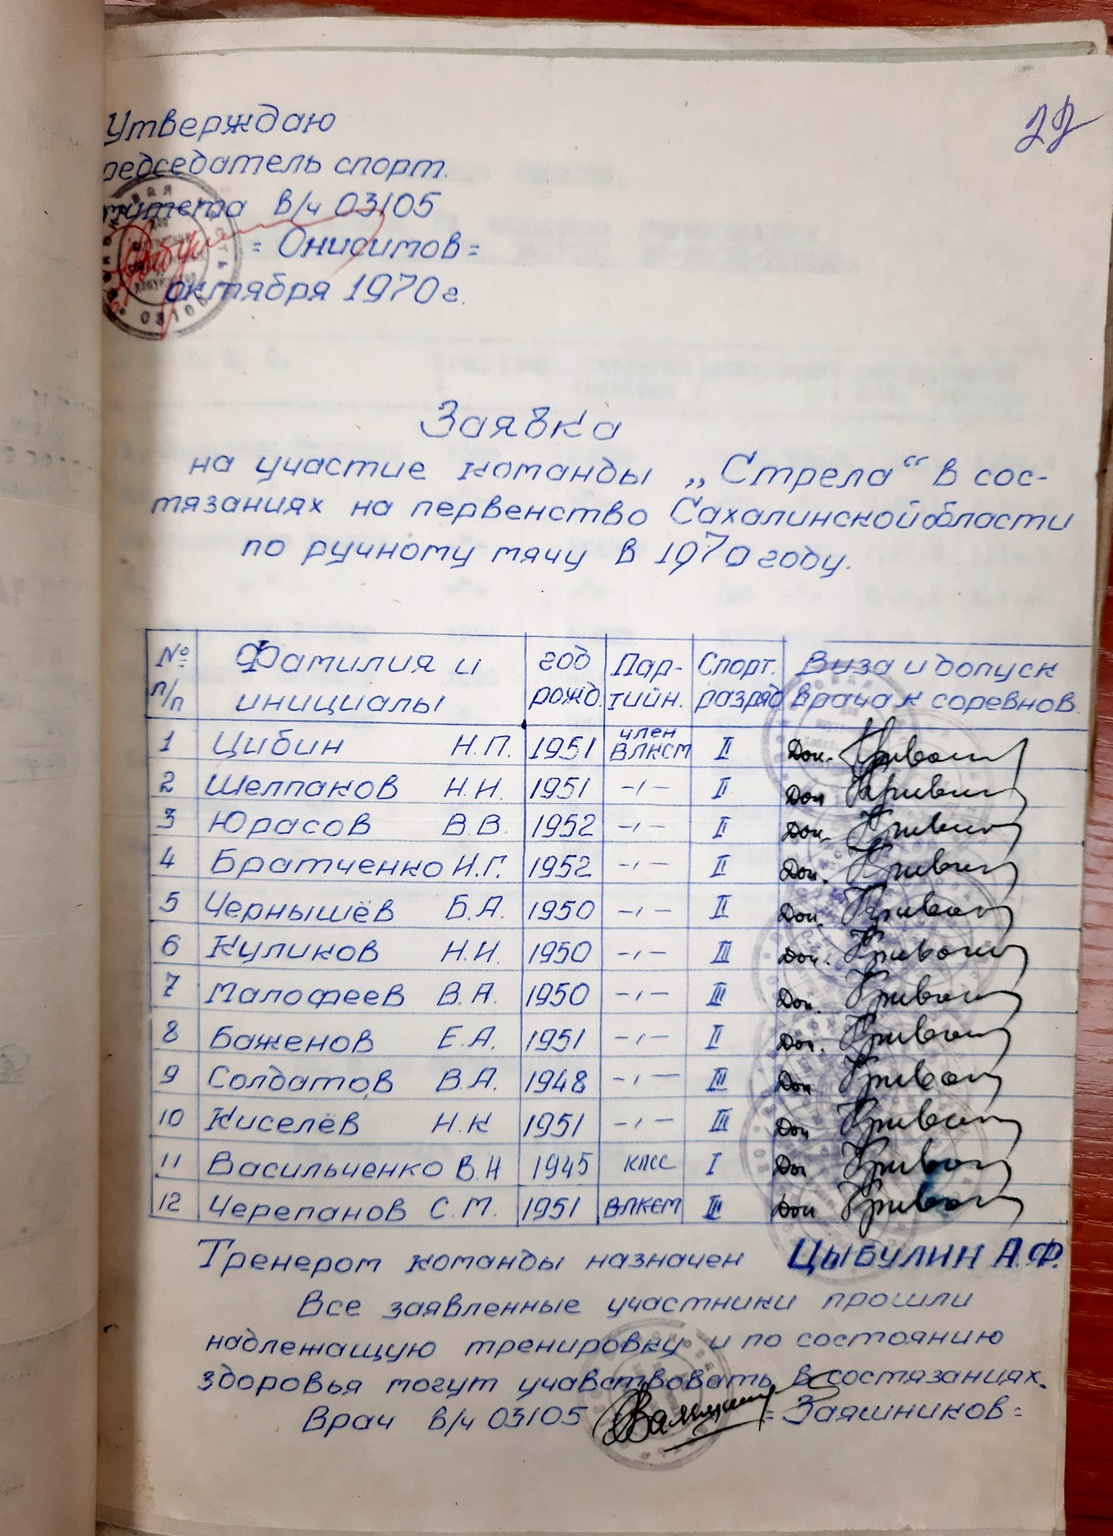 22
Утверждаю
редседатель спорт.
митета в/ч 03105
= Онисимов =
октября 1970 г.
Заявка
на участие команды „Стрела“ в сос-
тязаниях на первенство Сахалинской области
по ручному мячу в 1970 году.
№ п/п Фамилия и инициалы год рожд. Пар- тийн. Спорт. разряд Виза и допуск врача к соревнов.
1 Цибин Н.П. 1951 член ВЛКСМ II Доп.
2 Шелпаков Н.И. 1951 -ı- II Доп
3 Юрасов В.В. 1952 -ı- II Доп.
4 Братченко И.Г. 1952 -ı- II Доп.
5 Чернышёв Б.А. 1950 -ı- II Доп.
6 Куликов Н.И. 1950 -ı- III Доп.
7 Малофеев В.А. 1950 -ı- III Доп.
8 Баженов Е.А. 1951 -ı- II Доп.
9 Солдатов В.А. 1948 -ı- III Доп
10 Киселёв Н.К 1951 -ı- III Доп
11 Васильченко В.Н 1945 КПСС I Доп
12 Черепанов С.М. 1951 ВЛКСМ III Доп
Тренером команды назначен ЦЫБУЛИН А.Ф.
Все заявленные участники прошли
надлежащую тренировку и по состоянию
здоровья могут учавствовать в состязаниях.
Врач в/ч 03105 = Заяшников =